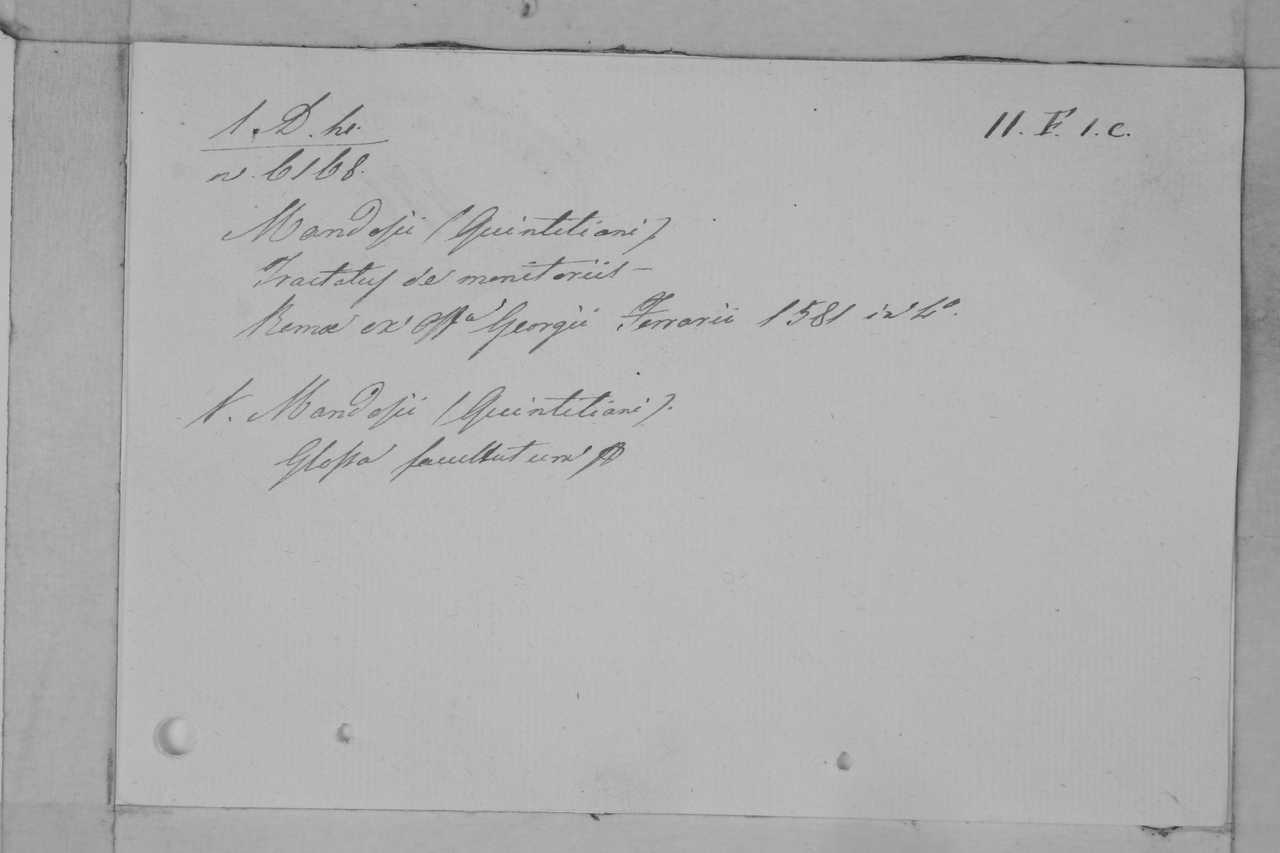 1. D. he.
II. F. 1. c.
n. 6168.
Mandosii (Quintiliani)
Tractatus de monitoriis –
Romæ ex Offa Georgii Ferrarii 1581 in 4o.
V. Mandosii (Quintiliani).
Glossa facultatum